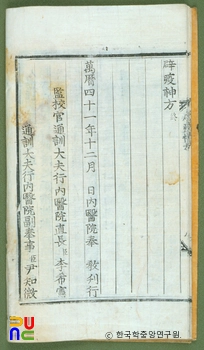 辟疫神方 終
萬曆四十一年十二月 日內醫院奉 教刊行
監校官通訓大夫行內醫院直長 臣 李希憲
通訓大夫行內醫院副奉事 臣 尹知微
ⓒ 한국학중앙연구원